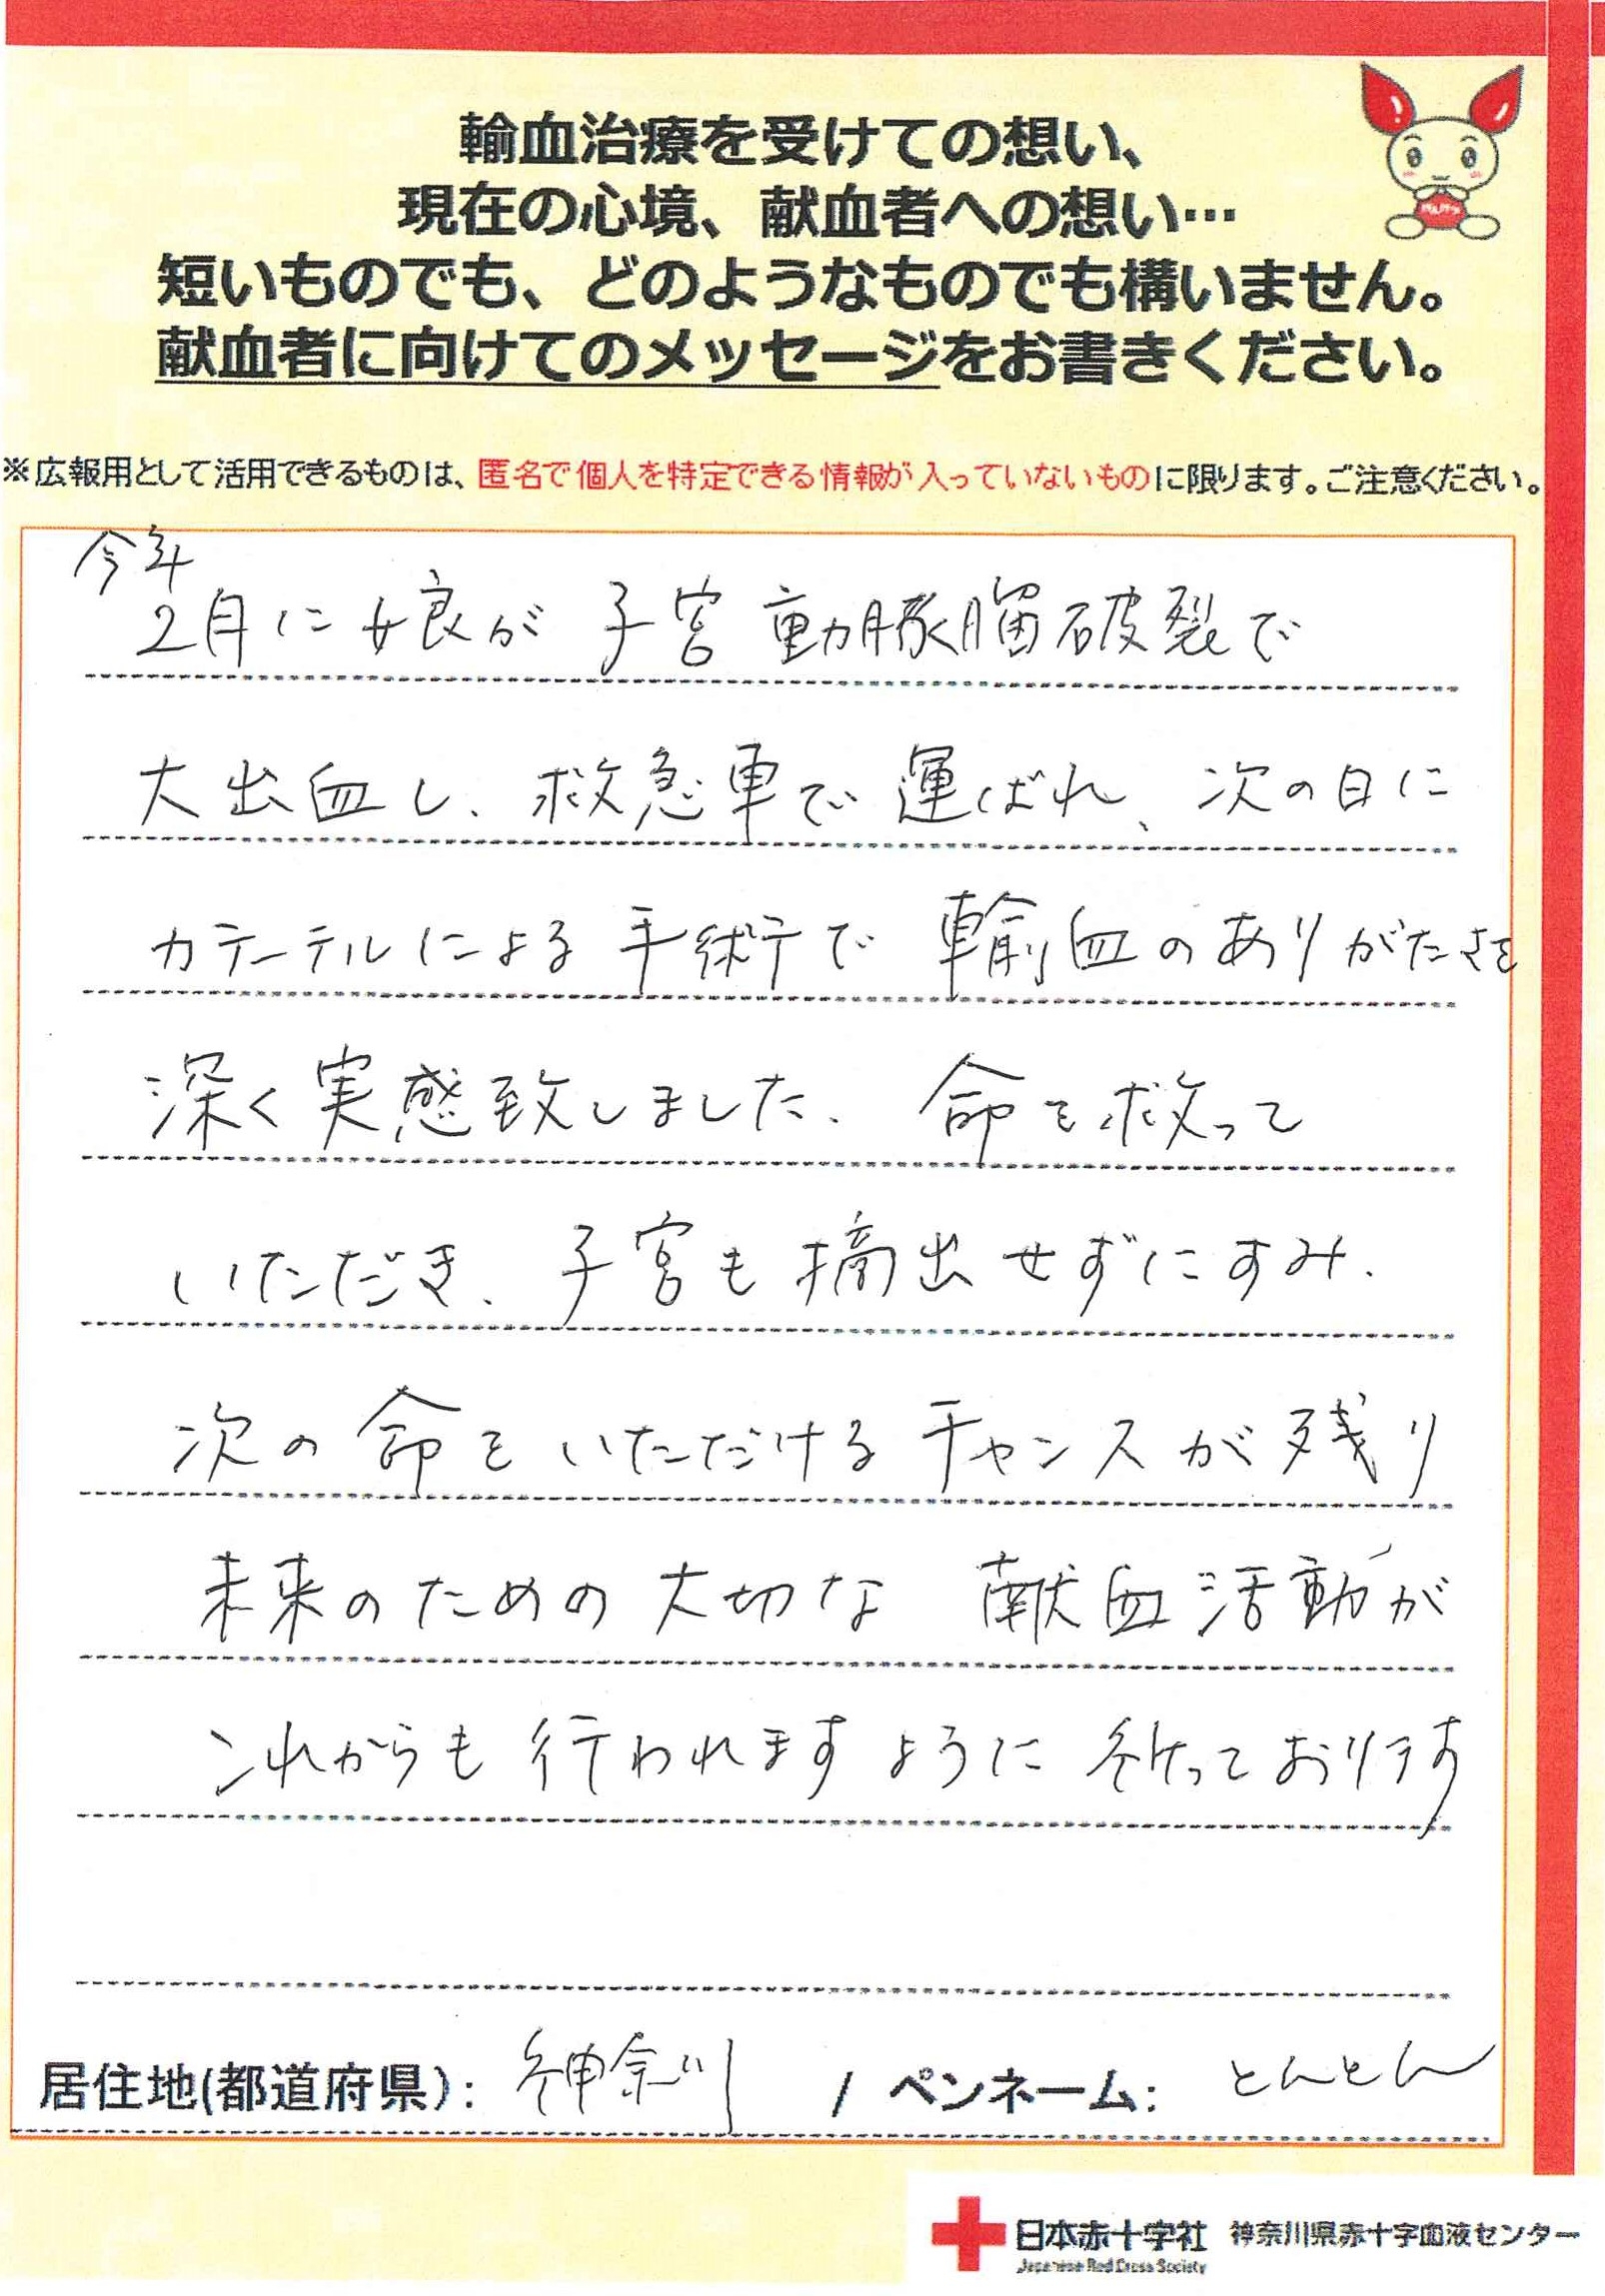 輸血治療を受けての想い、
現在の心境、献血者への想い…
短いものでも、どのようなものでも構いません。
献血者に向けてのメッセージをお書きください。
※広報用として活用できるものは、匿名で個人を特定できる情報が入っていないものに限ります。ご注意ください。
今年
2月に娘が 子宮動脈瘤破裂で
大出血し、救急車で運ばれ、次の日に
カテーテルによる手術で 輸血のありがたさを
深く実感致しました。 命を救って
いただき、子宮も摘出せずにすみ、
次の命をいただけるチャンスが残り
未来のための大切な 献血活動が
これからも行われますように 祈っております
居住地(都道府県): 神奈川 / ペンネーム: とんとん
日本赤十字社 神奈川県赤十字血液センター
Japanese Red Cross Society